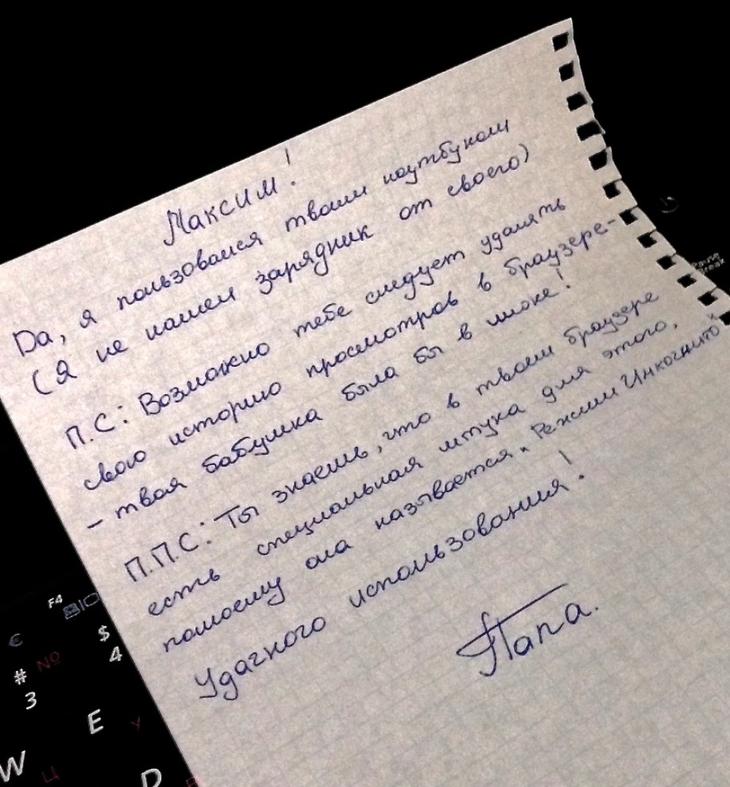 Максим!
Да, я пользовался твоим ноутбуком
(Я не нашел зарядник от своего)
П.С: Возможно тебе следует удалять
свою историю просмотров в браузере-
- твоя бабушка была бы в шоке!
П.П.С: Ты знаешь, что в твоем браузере
есть специальная штука для этого,
помоему она называется "Режим Инкогнито"
Удачного использования!
Папа.
Pause
Break
F4
€
$
4
№
#
3
W
Ц
E
У
D